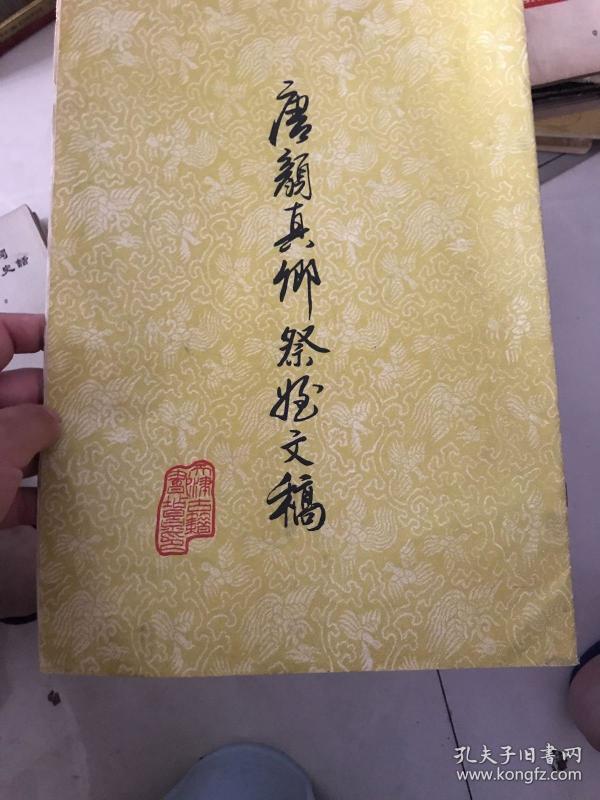 唐颜真卿祭姪文稿
天津古籍
书店
孔夫子旧书网
www.kongfz.com